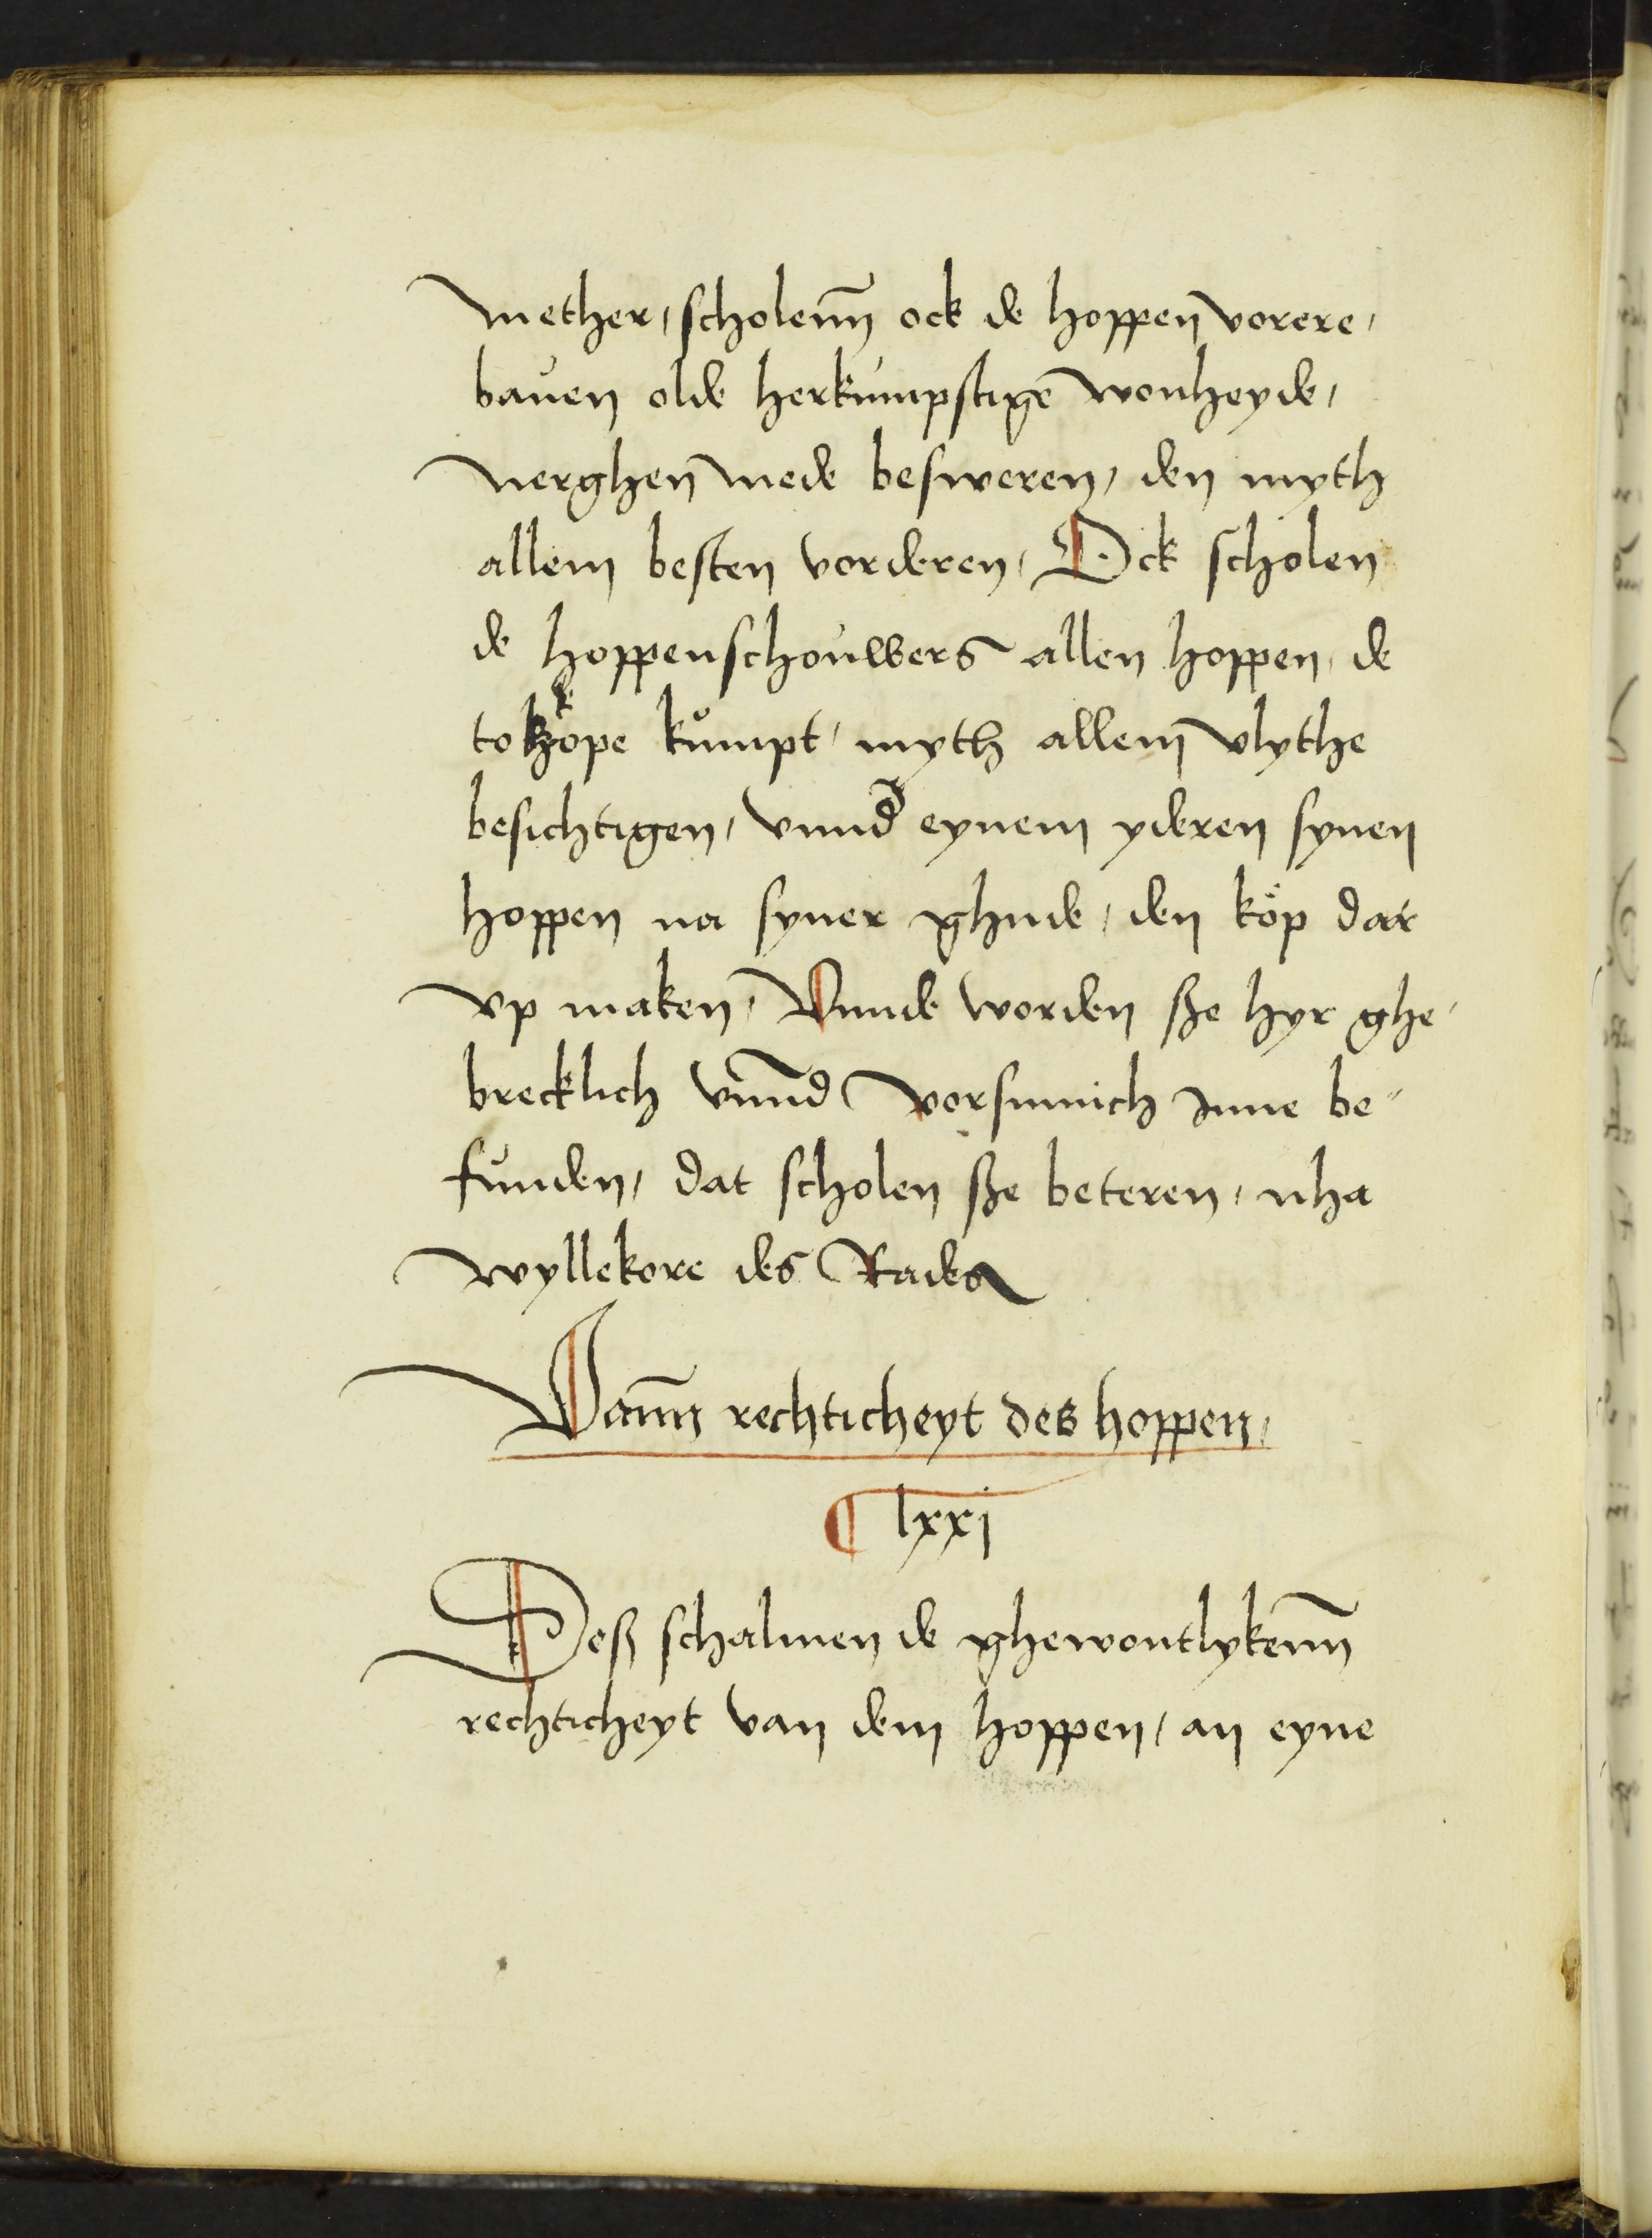 mether, scholenn ock de hoppen vorere,
bauen olde herkumpstige wonheyde,
nerghen mede besweren, den myth
allem besten vorderen, Ock scholen
de hoppenschouwers allen hoppen, de
to kope kumpt, myth allem vlythe
besichtigen, vnnd eynem yderen synen
hoppen na syner ghude, den köp dar
vp maken, Vnnde worden sze hyr ghe-
brecklich vnnd vorsumich jnne be-
funden, dat scholen sze beteren, nha
wyllekore des Rades
Vann rechticheyt des hoppen,
¶ lxxj
Desz schalmen de ghewontlykenn
rechticheyt van dem hoppen, an eyne